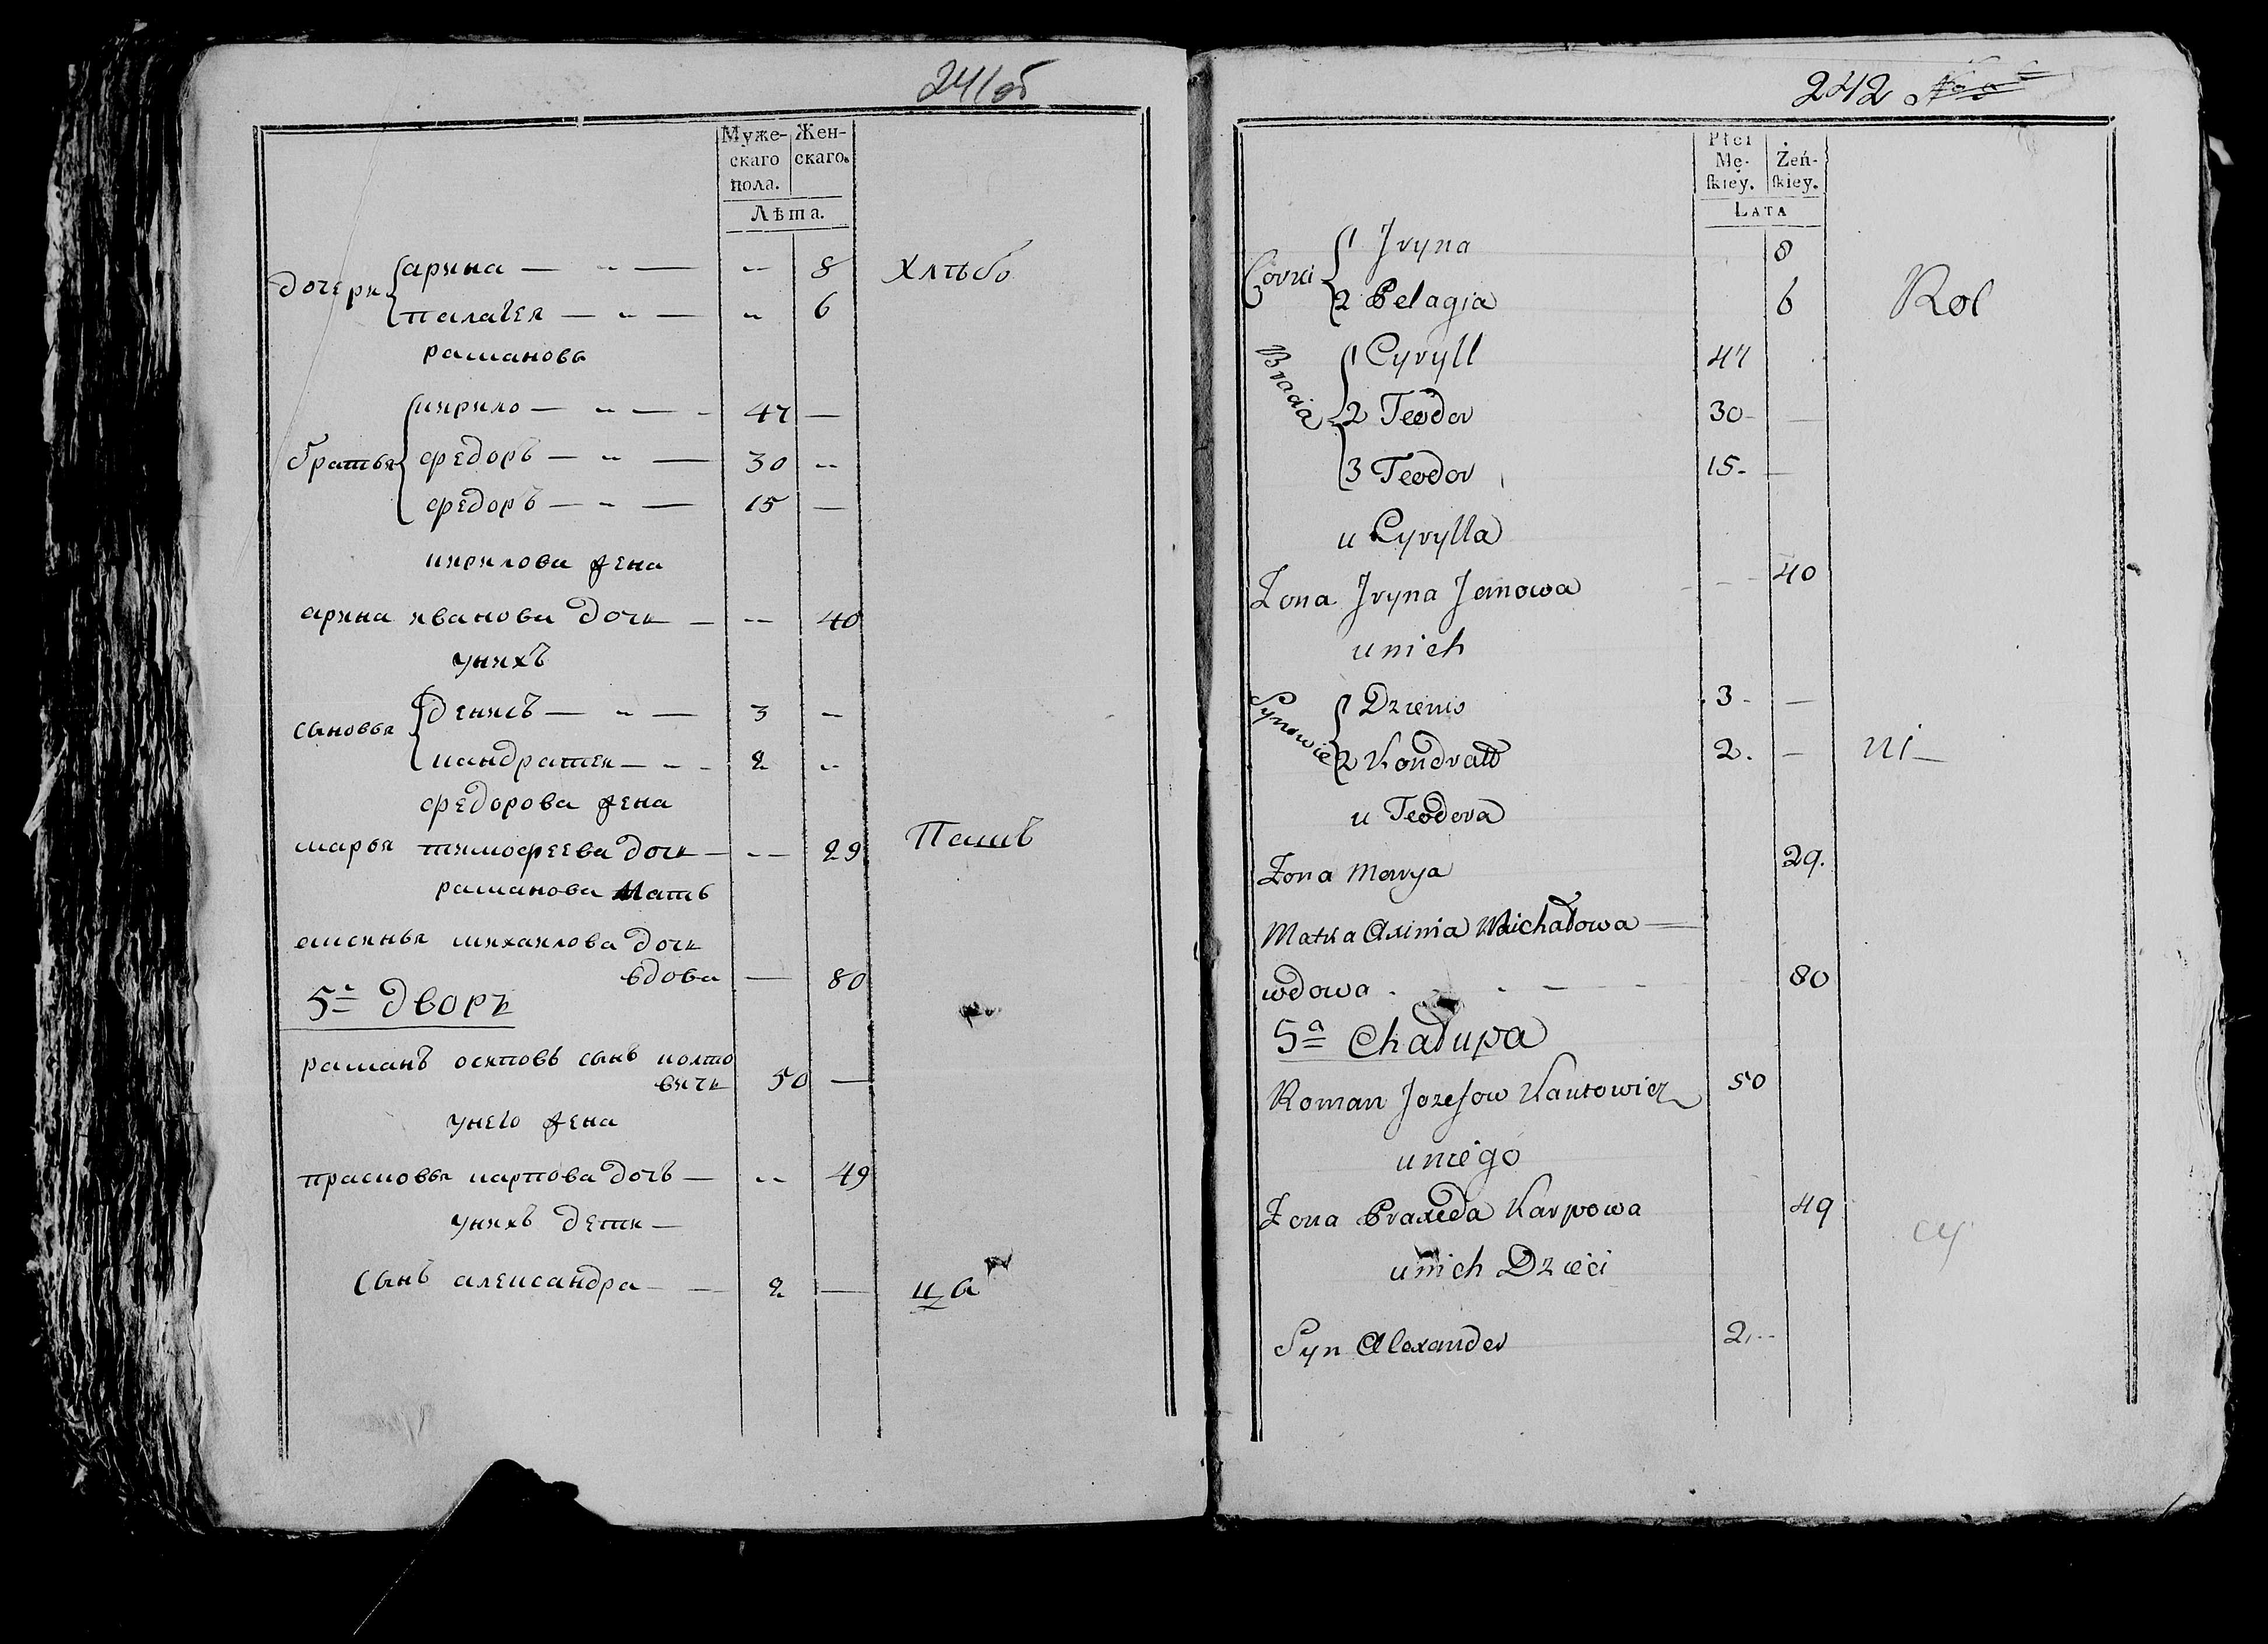 241об
Муже- Жен-
скаго скаго.
пола.
Лѣта.
Дочери арина — „ — -- 8 Хлѣбо
палагея — „ — „ 6
рамановы
кирило — „ — - 47 —
братья федоръ — „ — 30 --
федоръ — „ — 15 —
кирилова жена
арина иванова дочь — -- 40
унихъ
сыновья денисъ — „ — 3 --
кандратей — - - 2 --
федорова жена
марья тимофеева дочь — -- 29 Пашъ
раманова мать
аксинья михаилова дочь
вдова — 80
5й Дворъ
раманъ осиповъ сынъ колто
вичь 50 —
унего жена
прасковья карпова дочь — -- 49
унихъ дети —
сынъ александра — — 2 — ца
242
Płci
Mę- Żeń-
ſkiey. ſkiey.
LATA
Corki 1 Jryna 8
2 Pelagia 6 Rol
Bracia 1 Cyryll 47
2 Teodor 30 - —
3 Teodor 15 - —
u Cyrylla
Zona Jryna Janowa 40
unich
Synowie 1 Dzienis 3 - —
2 Kondratt 2. — ni
u Teodora
Zona Marya 29.
Matka Axinia Michałowa —
wdowa 80
5a Chałupa
Roman Jozefow Kautowicz 50
uniego
Zona Praxeda Karpowa 49
unich Dzieci cy
Syn Alexander 2. --